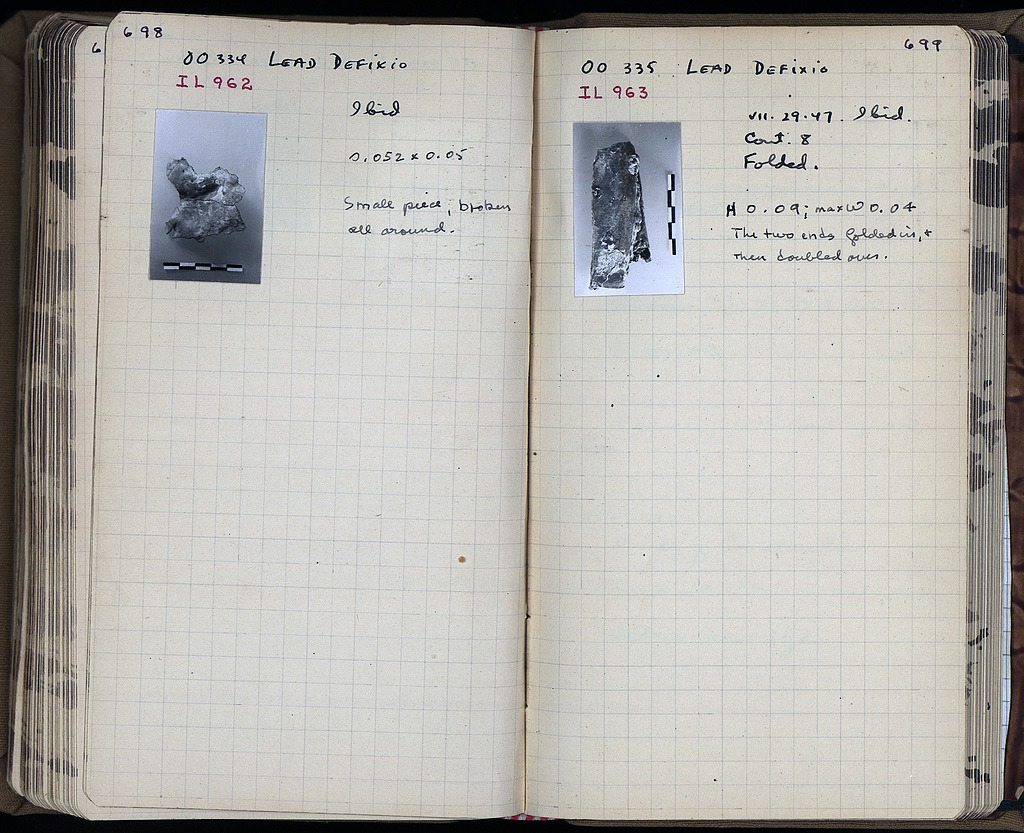 698
6
OO 334 LEAD DEFIXIO
IL 962
Ibid
0.052 x 0.05
Small piece, broken
all around.
699
OO 335 LEAD DEFIXIO
IL 963
VII. 29. 47. Ibid.
Cont. 8
Folded.
H 0.09; max W 0.04
The two ends folded in, +
then doubled over.